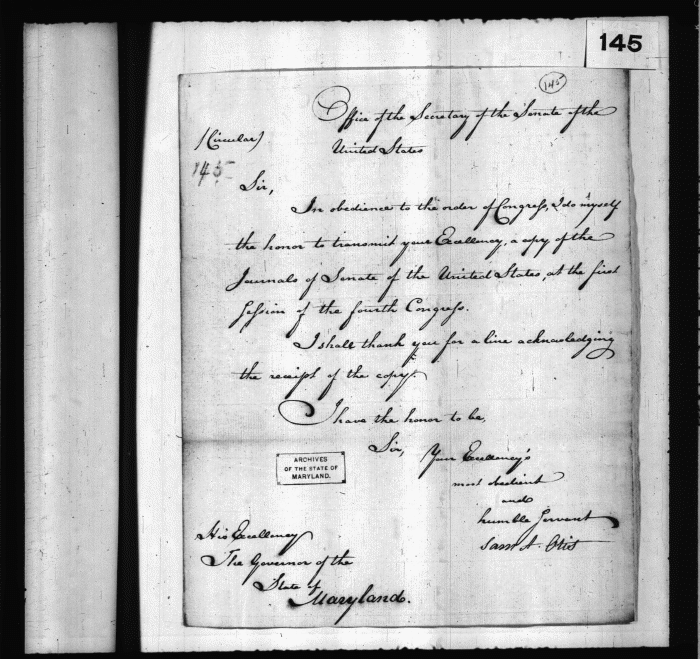 145
145
Office of the Secretary of the Senate of the
(Circular)
United States
145
Sir,
In obedience to the order of Congress, I do myself
the honor to transmit your Excellency, a copy of the
Journals of Senate of the United States, at the first
session of the fourth Congress.
I shall thank you for a line acknowledging
the receipt of the copy.
I have the honor to be,
Sir,
Your Excellency's
most obedient
and
humble Servant
Sam A. Otis
ARCHIVES
OF THE STATE OF
MARYLAND.
His Excellency
The Governor of the
State of
Maryland.